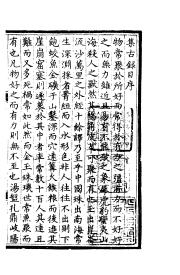 集古錄目序
物常聚於所好而常得於有力之彊有力而不好好
之而無力雖近且易有不能致之象犀虎豹蠻夷山
海殺人之獸然其齒角皮革可聚而有也玉出崑崙
流沙萬里之外經十餘譯乃至乎中國珠出南海常
生深淵採者腰絙而入水形色非人往往不出則下
飽蛟魚金礦于山鑿深而穴遠篝火餱糧而後進其
崖崩窟塞則遂葬於其中者率常數十百人其遠且
難而又多死禍常如此然而金玉珠璣世常兼聚而
有也凡物好之而有力則無不至也湯盤孔鼎岐陽